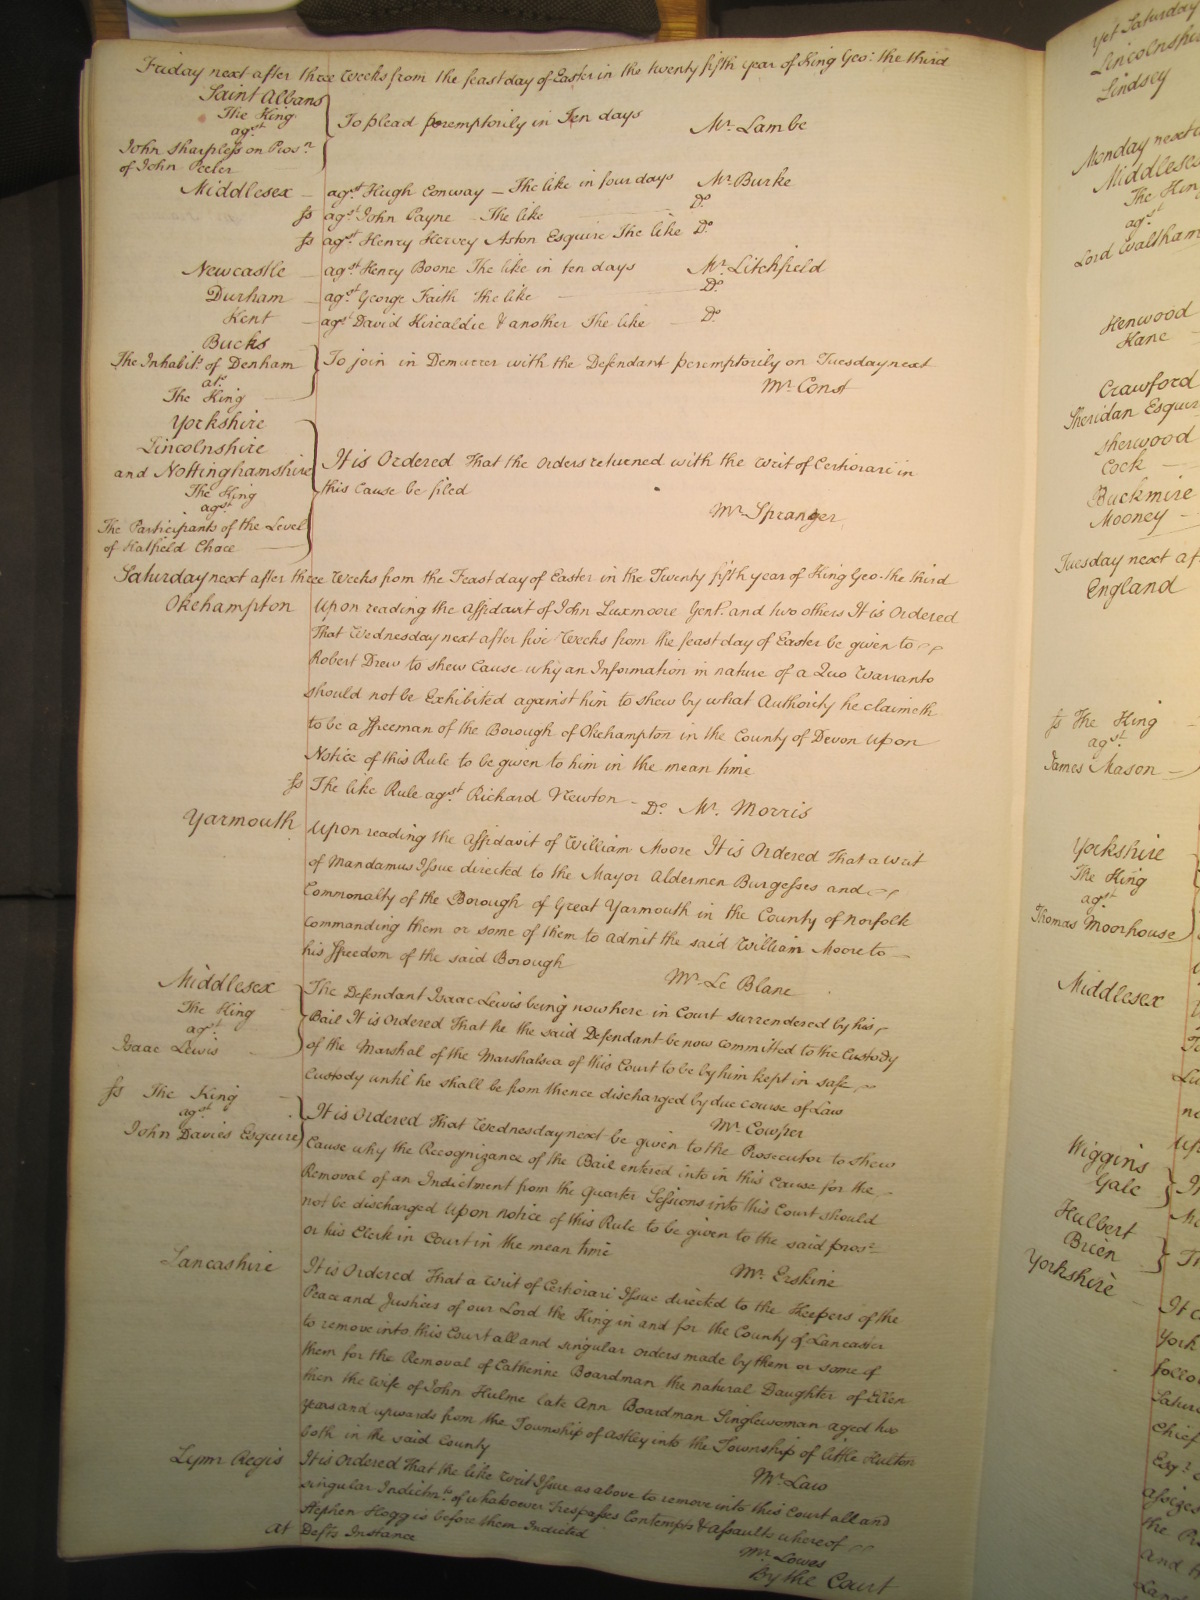 Friday next after three Weeks from the feast day of Easter in the twenty fifth year of King Geo: the third
Saint Albans
The King
agst
John Sharpless on Prosn
of John Peeter
To plead peremptorily in Ten days Mr. Lambe
Middlesex agst Hugh Conway – The like in four days Mr. Burke
ss agst John Payne – The like Do
ss agst Henry Hervey Aston Esquire The like Do
Newcastle agst Henry Boone The like in ten days Mr. Litchfield
Durham agst George Faith The like Do
Kent agst David Kircaldie & another The like Do
Bucks
The Inhabits of Denham
ats
The King
To join in Demurrer with the Defendant peremptorily on Tuesday next
Mr. Const
Yorkshire
Lincolnshire
and Nottinghamshire
The King
agst
The Participants of the Level
of Hatfield Chace
It is Ordered That the Orders returned with the Writ of Certiorari in
this Cause be filed
Mr. Spranger
Saturday next after three Weeks from the Feast day of Easter in the Twenty fifth year of King Geo. the third
Okehampton Upon reading the Affidavit of John Luxmoore Gent. and two others It is Ordered
That Wednesday next after five Weeks from the feast day of Easter be given to
Robert Drew to shew Cause why an Information in nature of a Quo Warranto
should not be Exhibited against him to shew by what Authority he claimeth
to be a ffreeman of the Borough of Okehampton in the County of Devon Upon
Notice of this Rule to be given to him in the mean time
ss The like Rule agst Richard Newton – Do Mr. Morris
Yarmouth Upon reading the Affidavit of William Moore It is Ordered That a Writ
of Mandamus Issue directed to the Mayor Aldermen Burgesses and
Commonalty of the Borough of Great Yarmouth in the County of Norfolk
commanding them or some of them to admit the said William Moore to
his ffreedom of the said Borough
Mr. Le Blanc
Middlesex
The King
agst
Isaac Lewis
The Defendant Isaac Lewis being now here in Court surrendered by his
Bail It is Ordered That he the said Defendant be now committed to the Custody
of the Marshal of the Marshalsea of this Court to be by him kept in safe
Custody until he shall be from thence discharged by due course of Law
Mr. Cowper
ss The King
agst
John Davies Esquire
It is Ordered That Wednesday next be given to the Prosecutor to shew
Cause why the Recognizance of the Bail entered into in this Cause for the
Removal of an Indictment from the Quarter Sessions into this Court should
not be discharged Upon notice of this Rule to be given to the said prosr
or his Clerk in Court in the mean time
Mr. Erskine
Lancashire It is Ordered That a Writ of Certiorari Issue directed to the Keepers of the
Peace and Justices of our Lord the King in and for the County of Lancaster
to remove into this Court all and singular orders made by them or some of
them for the Removal of Catherine Boardman the natural Daughter of Ellen
then the Wife of John Hulme late Ann Boardman Singlewoman aged two
years and upwards from the Township of Astley into the Township of little Hulton
both in the said County
Mr. Law
Lynn Regis It is Ordered That the like Writ Issue as above to remove into this Court all and
singular Indictmts of whatsoever Trespasses Contempts & assaults whereof
Stephen Hogg is before them Indicted
At Defts Instance
Mr. Lowes
By the Court
Yet Saturday
Lincolnshi
Lindsey
Monday next a
Middlesex
The King
agst
Lord Waltham
Henwood
Kane
Crawford
Sheridan Esquir
Sherwood
Cock
Buckmire
Mooney
Tuesday next af
England
ss The King
agst
James Mason
Yorkshire
The King
agst
Thomas Moorhouse
Middlesex
Wiggins
Gale
Hulbert
Brien
Yorkshire